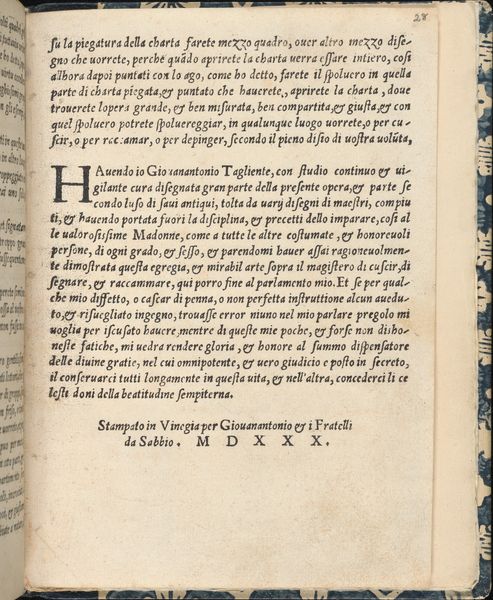 28
su la piegatura della charta farete mezzo quadro, ouer altro mezzo dise-
gno che uorrete, perche quãdo aprirete la charta uerra essare intiero, cosi
allhora dapoi puntati con lo ago, come ho detto, farete il spoluero in quella
parte di charta piegata, & puntato che hauerete, aprirete la charta, doue
trouerete lopera grande, & ben misurata, ben compartita, & giusta, & con
quel spoluero potrete spoluereggiar, in qualunque luogo uorrete, o per cu-
scir, o per raccamar, o per depinger, secondo il pieno disio di uostra volũta,
HAuendo io Giouanantonio Tagliente, con studio continuo & ui-
gilante cura disegnata gran parte della presente opera, & parte se
condo luso di saui antiqui, tolta da uarij disegni di maestri, compiu
ti, & hauendo portata fuori la disciplina, & precetti dello imparare, cosi al
le ualorosissime Madonne, come a tutte le altre costumate, & honoreuoli
persone, di ogni grado, & sesso, & parendomi hauer assai ragioneuolmen-
te dimostrata questa egregia, & mirabil arte sopra il magistero di cuscir, di
segnare, & raccammare, qui porro fine al parlamento mio. Et se per qual-
che mio diffetto, o cascar di penna, o non perfetta instruttione alcun auedu-
to, & risuegliato ingegno, trouasse error niuno nel mio parlare pregolo mi
uoglia per iscusato hauere, mentre di queste mie poche, & forse non disho-
neste fatiche, mi uedra rendere gloria, & honore al summo dispensatore
delle diuine gratie, nel cui omnipotente, & uero giudicio e posto in secreto,
il conseruarci tutti longamente in questa uita, & nell'altra, concederci li ce
lesti doni della beatitudine sempiterna.
Stampato in Vinegia per Giouanantonio & i Fratelli
da Sabbio. M D X X X.